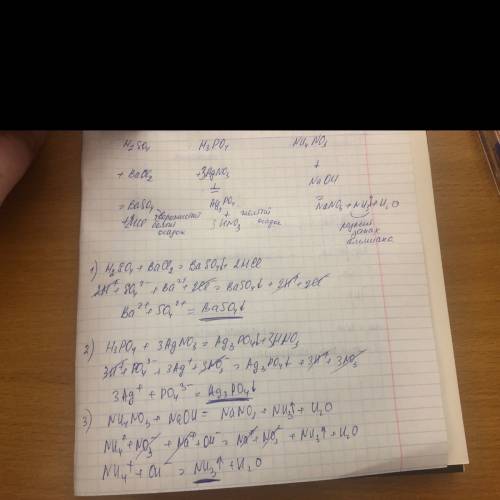 H₂SO₄ H₃PO₄ NH₄NO₃
+ BaCl₂ +3AgNO₃ +
↓ NaOH
= BaSO₄ Ag₃PO₄ = NaNO₃ + NH₃↑ + H₂O
+2HCl творожистый белый осадок + 3HNO₃ желтый осадок резкий запах аммиака
1) H₂SO₄ + BaCl₂ = BaSO₄↓ + 2HCl
2H⁺ + SO₄²⁻ + Ba²⁺ + 2Cl⁻ = BaSO₄↓ + 2H⁺ + 2Cl⁻
Ba²⁺ + SO₄²⁻ = BaSO₄↓
2) H₃PO₄ + 3AgNO₃ = Ag₃PO₄↓ + 3HNO₃
3H⁺ + PO₄³⁻ + 3Ag⁺ + 3NO₃⁻ = Ag₃PO₄↓ + 3H⁺ + 3NO₃⁻
3Ag⁺ + PO₄³⁻ = Ag₃PO₄↓
3) NH₄NO₃ + NaOH = NaNO₃ + NH₃↑ + H₂O
NH₄⁺ + NO₃⁻ + Na⁺ + OH⁻ = Na⁺ + NO₃⁻ + NH₃↑ + H₂O
NH₄⁺ + OH⁻ = NH₃↑ + H₂O